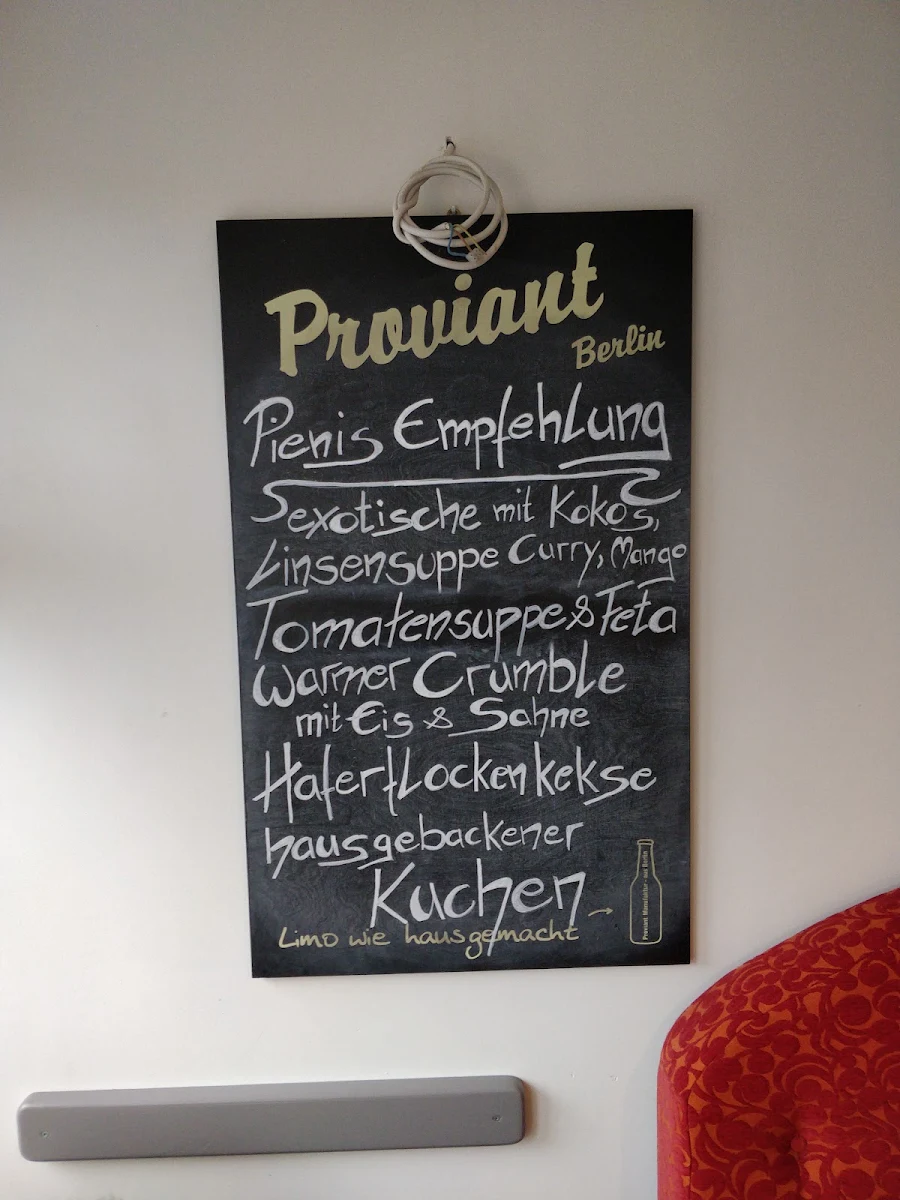 Proviant
Berlin
Pienis Empfehlung
Sexotische mit Kokos,
Linsensuppe Curry, Mango
Tomatensuppe & Feta
warmer Crumble
mit Eis & Sahne
Haferflockenkekse
hausgebackener
Kuchen
Limo wie hausgemacht →
Proviant Manufaktur - aus Berlin